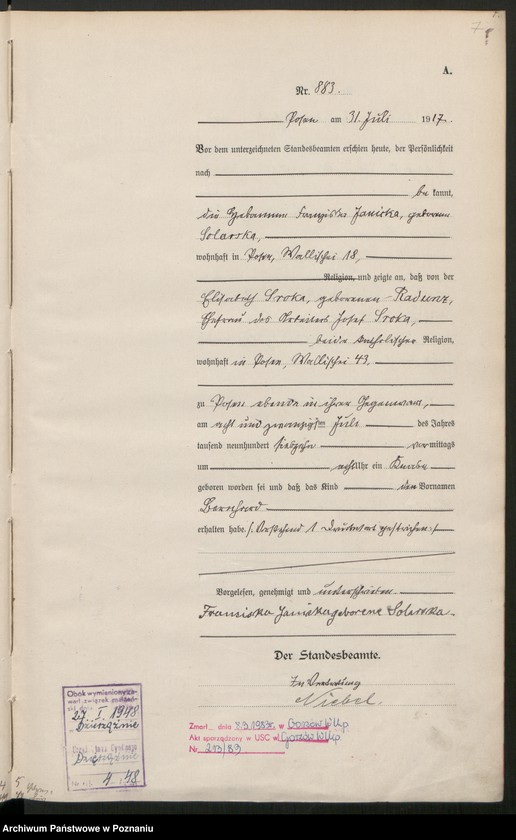 7
A.
Nr. 883.
Posen am 31. Juli 1917.
Vor dem unterzeichneten Standesbeamten erschien heute, der Persönlichkeit
nach
bekannt,
die Hebamme Franziska Janicka, geborene
Solarska,
wohnhaft in Posen, Wallischei 18,
Religion, und zeigte an, daß von der
Elisabeth Sroka, geborenen Radunz,
Ehefrau des Arbeiters Josef Sroka,
beide katholischer Religion,
wohnhaft in Posen, Wallischei 43.
zu Posen ebenda in ihrer Gegenwart,
am acht und zwanzigsten Juli des Jahres
tausend neunhundert siebzehn vormittags
um acht Uhr ein Knabe
geboren worden sei und daß das Kind den Vornamen
Bernhard
erhalten habe. (Vorstehend 1 Druckwort gestrichen.)
Vorgelesen, genehmigt und unterschrieben
Fransiska Janicka geborene Solarska
Der Standesbeamte.
In Vertretung
Niebel.
Obok wymieniony za-
warł związek małżeń-
ski dnia
27. I. 1948
w
Urząd Stanu Cywilnego
Nr 4/48
Zmarł dnia 8.9.1983r. w Gorzów Wlkp
Akt sporządzony w USC w Gorzów Wlkp
Nr 213/83
Archiwum Państwowe w Poznaniu